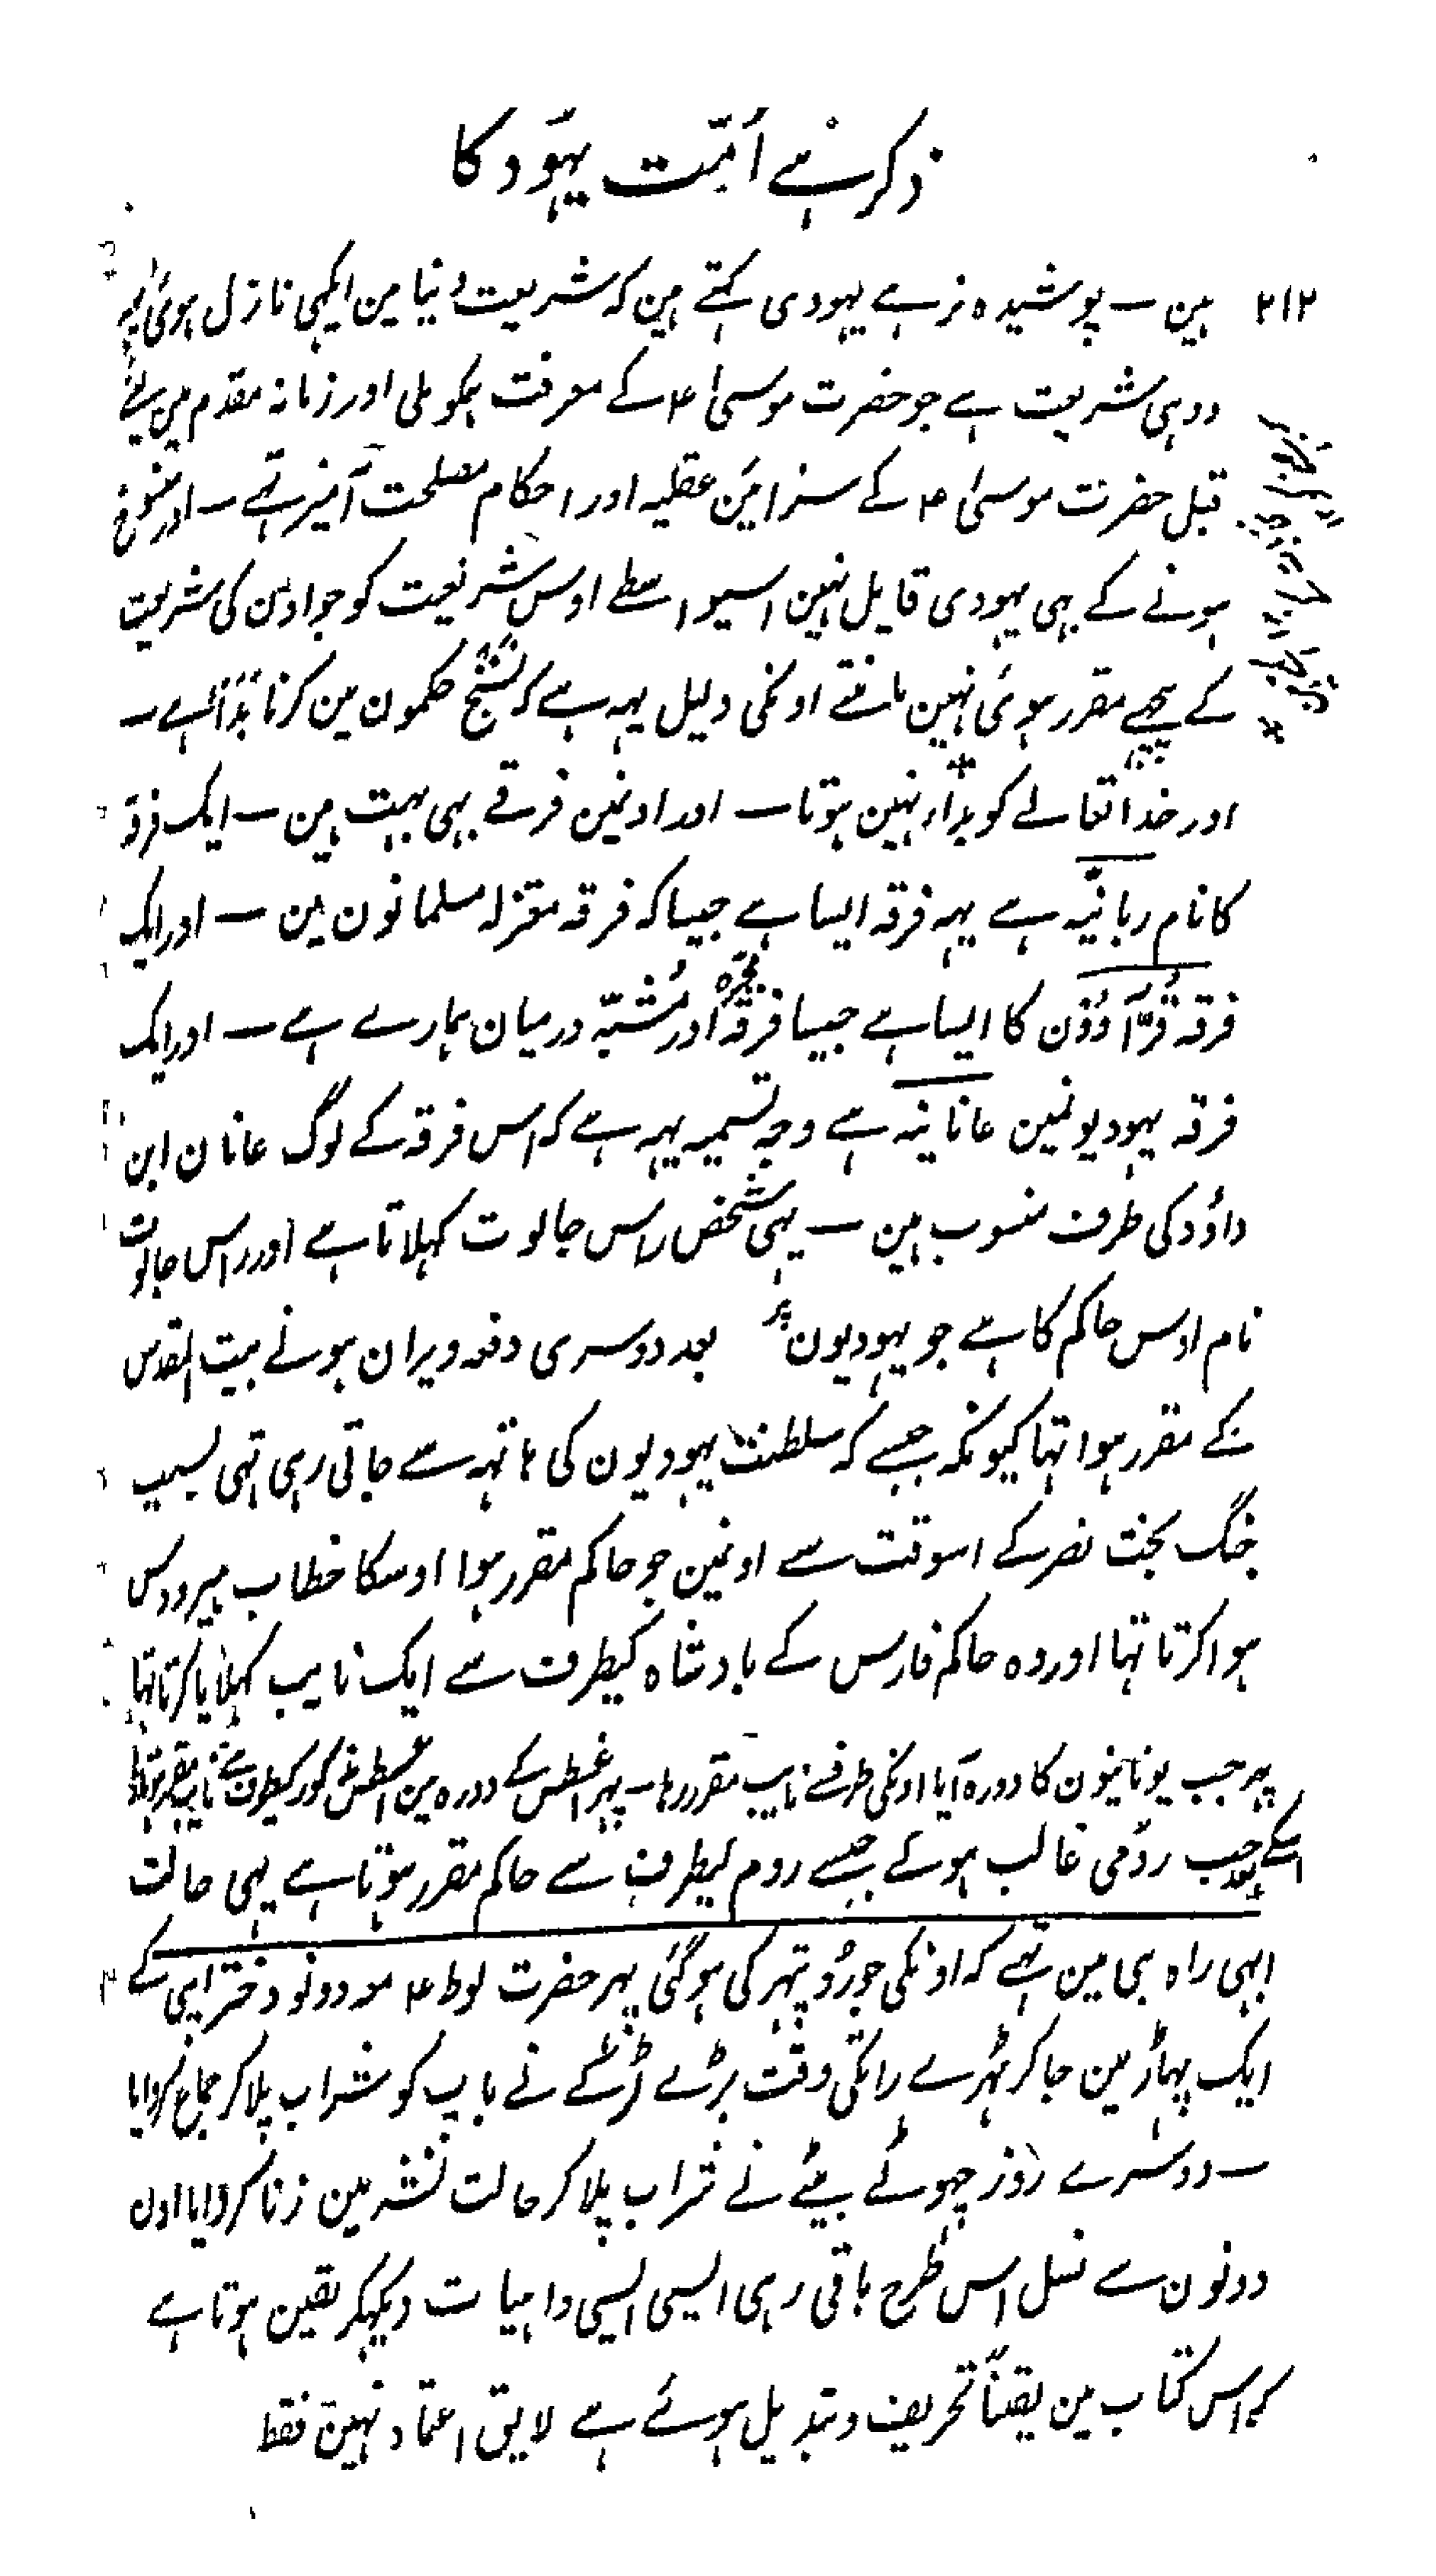 ذکر ہے اُمّت یہود کا
۲۱۲ ہین ـ پوشیدہ نرہے یہودی کہتے ہین کہ شریعت دنیا مین ایکہی نازل ہوئی ہے
ووہی شریعت ہے جو حضرت موسیٰ ۴ کے معرفت ہمکو ملی اور زمانہ مقدم مین یعنے
قبل حضرت موسیٰ ۴ کے سزائین عقلیہ اور احکام مصلحت آمیز تہے ـ اور منسوخ
ہونے کے بہی یہودی قایل نہین اسیواسطے اوس شریعت کو جو اون کی شریعت
کے پیچہے مقرر ہوئی نہین مانتے اونکی دلیل یہہ ہے کہ نسخ حکمون مین کرنا بداٗ ہے ـ
اور خدا تعالے کو بداٗ نہین ہوتا ـ اور اونمین فرقے بہی بہت ہین ـ ایک فرقہ
کا نام ربانیہ ہے یہہ فرقہ ایسا ہے جیسا کہ فرقہ معتزلہ مسلمانون مین ـ اور ایک
فرقہ قرّاٗوُن کا ایسا ہے جیسا فرقہ مجبرہ اور مُشبّہ درمیان ہمارے ہے ـ اور ایک
فرقہ یہودیونمین عانانیہ ہے وجہ تسمیہ یہہ ہے کہ اس فرقہ کے لوگ عانان ابن
داؤد کی طرف منسوب ہین ـ یہی شخص راس جالوت کہلاتا ہے اور راس جالوت
نام اوس حاکم کا ہے جو یہودیون پر بعد دوسری دفعہ ویران ہونے بیت المقدس
کے مقرر ہوا تہا کیونکہ جبسے کہ سلطنت یہودیون کی ہاتہہ سے جاتی رہی تہی بسبب
جنگ بخت نصر کے اسوقت سے اونمین جو حاکم مقرر ہوا اوسکا خطاب ہیرودس
ہوا کرتا تہا اور وہ حاکم فارس کے بادشاہ کیطرف سے ایک نایب کہلایا کرتا تہا
پہر جب یونانیون کا دورہ آیا اونکی طرفسے نایب مقرر رہا ـ پہر اغسطس کے دورہ مین اغسطس مذکور کیطرف سے نایب مقرر ہوتا رہا
اسکے بعد جب رومی غالب ہوئے جبسے روم کیطرف سے حاکم مقرر ہوتا ہے یہی حالت
ابہی راہ ہی مین تہے کہ اونکی جورو پتہر کی ہوگئی پہر حضرت لوط ۴ مہ دونو دختر اپنی کے
ایک پہاڑ مین جا کر ٹہرے راتکی وقت بڑے لڑکے نے باپ کو شراب پلا کر جماع کروایا
ـ دوسرے روز چہوٹے بیٹے نے شراب پلا کر حالت نشہ مین زنا کروایا اون
دونون سے نسل اس طرح باقی رہی ایسی ایسی واہیات دیکہکر یقین ہوتا ہے
کہ اس کتاب مین یقیناً تحریف و تبدیل ہوئے ہے لایق اعتماد نہین فقط